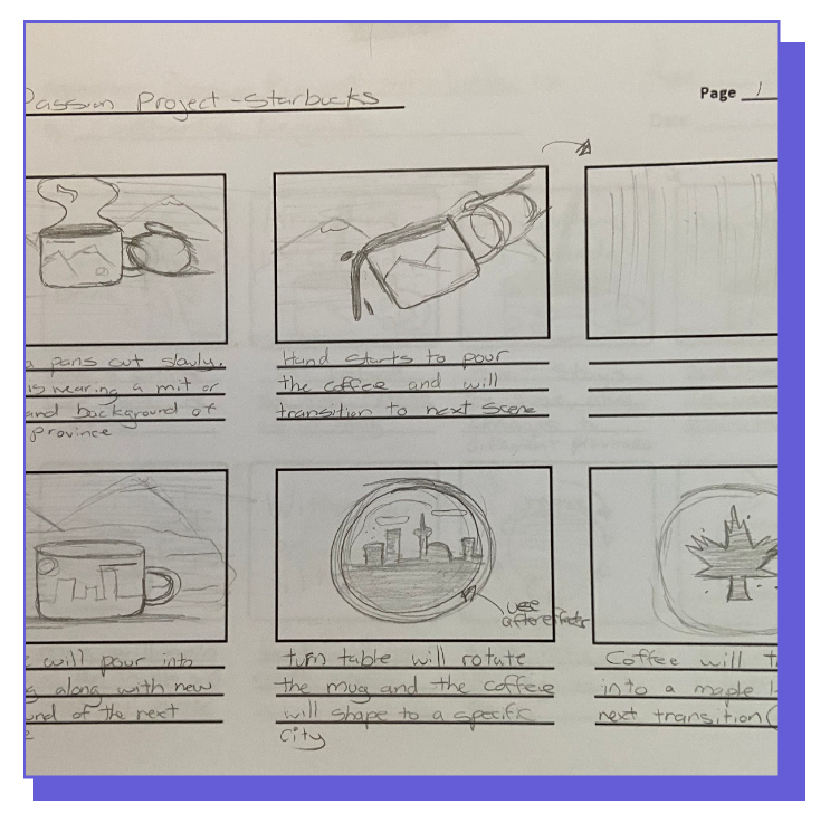 Passion Project - Starbucks
Page 1
pans out slowly.
is wearing a mit or
and background of
province
Hand starts to pour
the coffee and will
transition to next scene
will pour into
along with new
of the next
use
after effects
turn table will rotate
the mug and the coffee
will shape to a specific
city
Coffee will
into a maple
next transition(